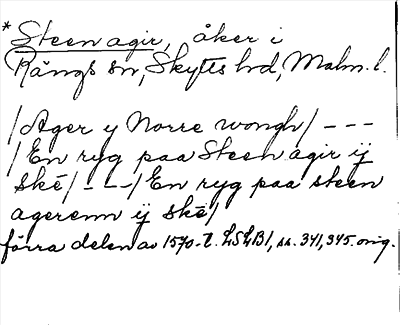 * Steen agir, åker i
Rängs sn, Skytts hd, Malm. l.
/Ager y Norre wongh/ - - -
/En ryg paa Steen agir ij
skē/ - - - /En ryg paa steen
agerenn ij skē/
förra delen av 1570-t. LSLB1, ss. 341, 345. orig.